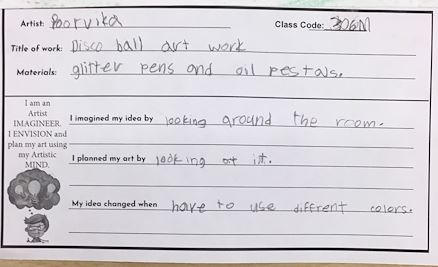 Artist: Poorvika Class Code: 306M
Title of work: Disco ball art work
Materials: glitter pens and oil pestals.
I am an
Artist
IMAGINEER.
I ENVISION and
plan my art using
my Artistic
MIND.
I imagined my idea by looking around the room.
I planned my art by looking at it.
My idea changed when have to use diffrent colors.